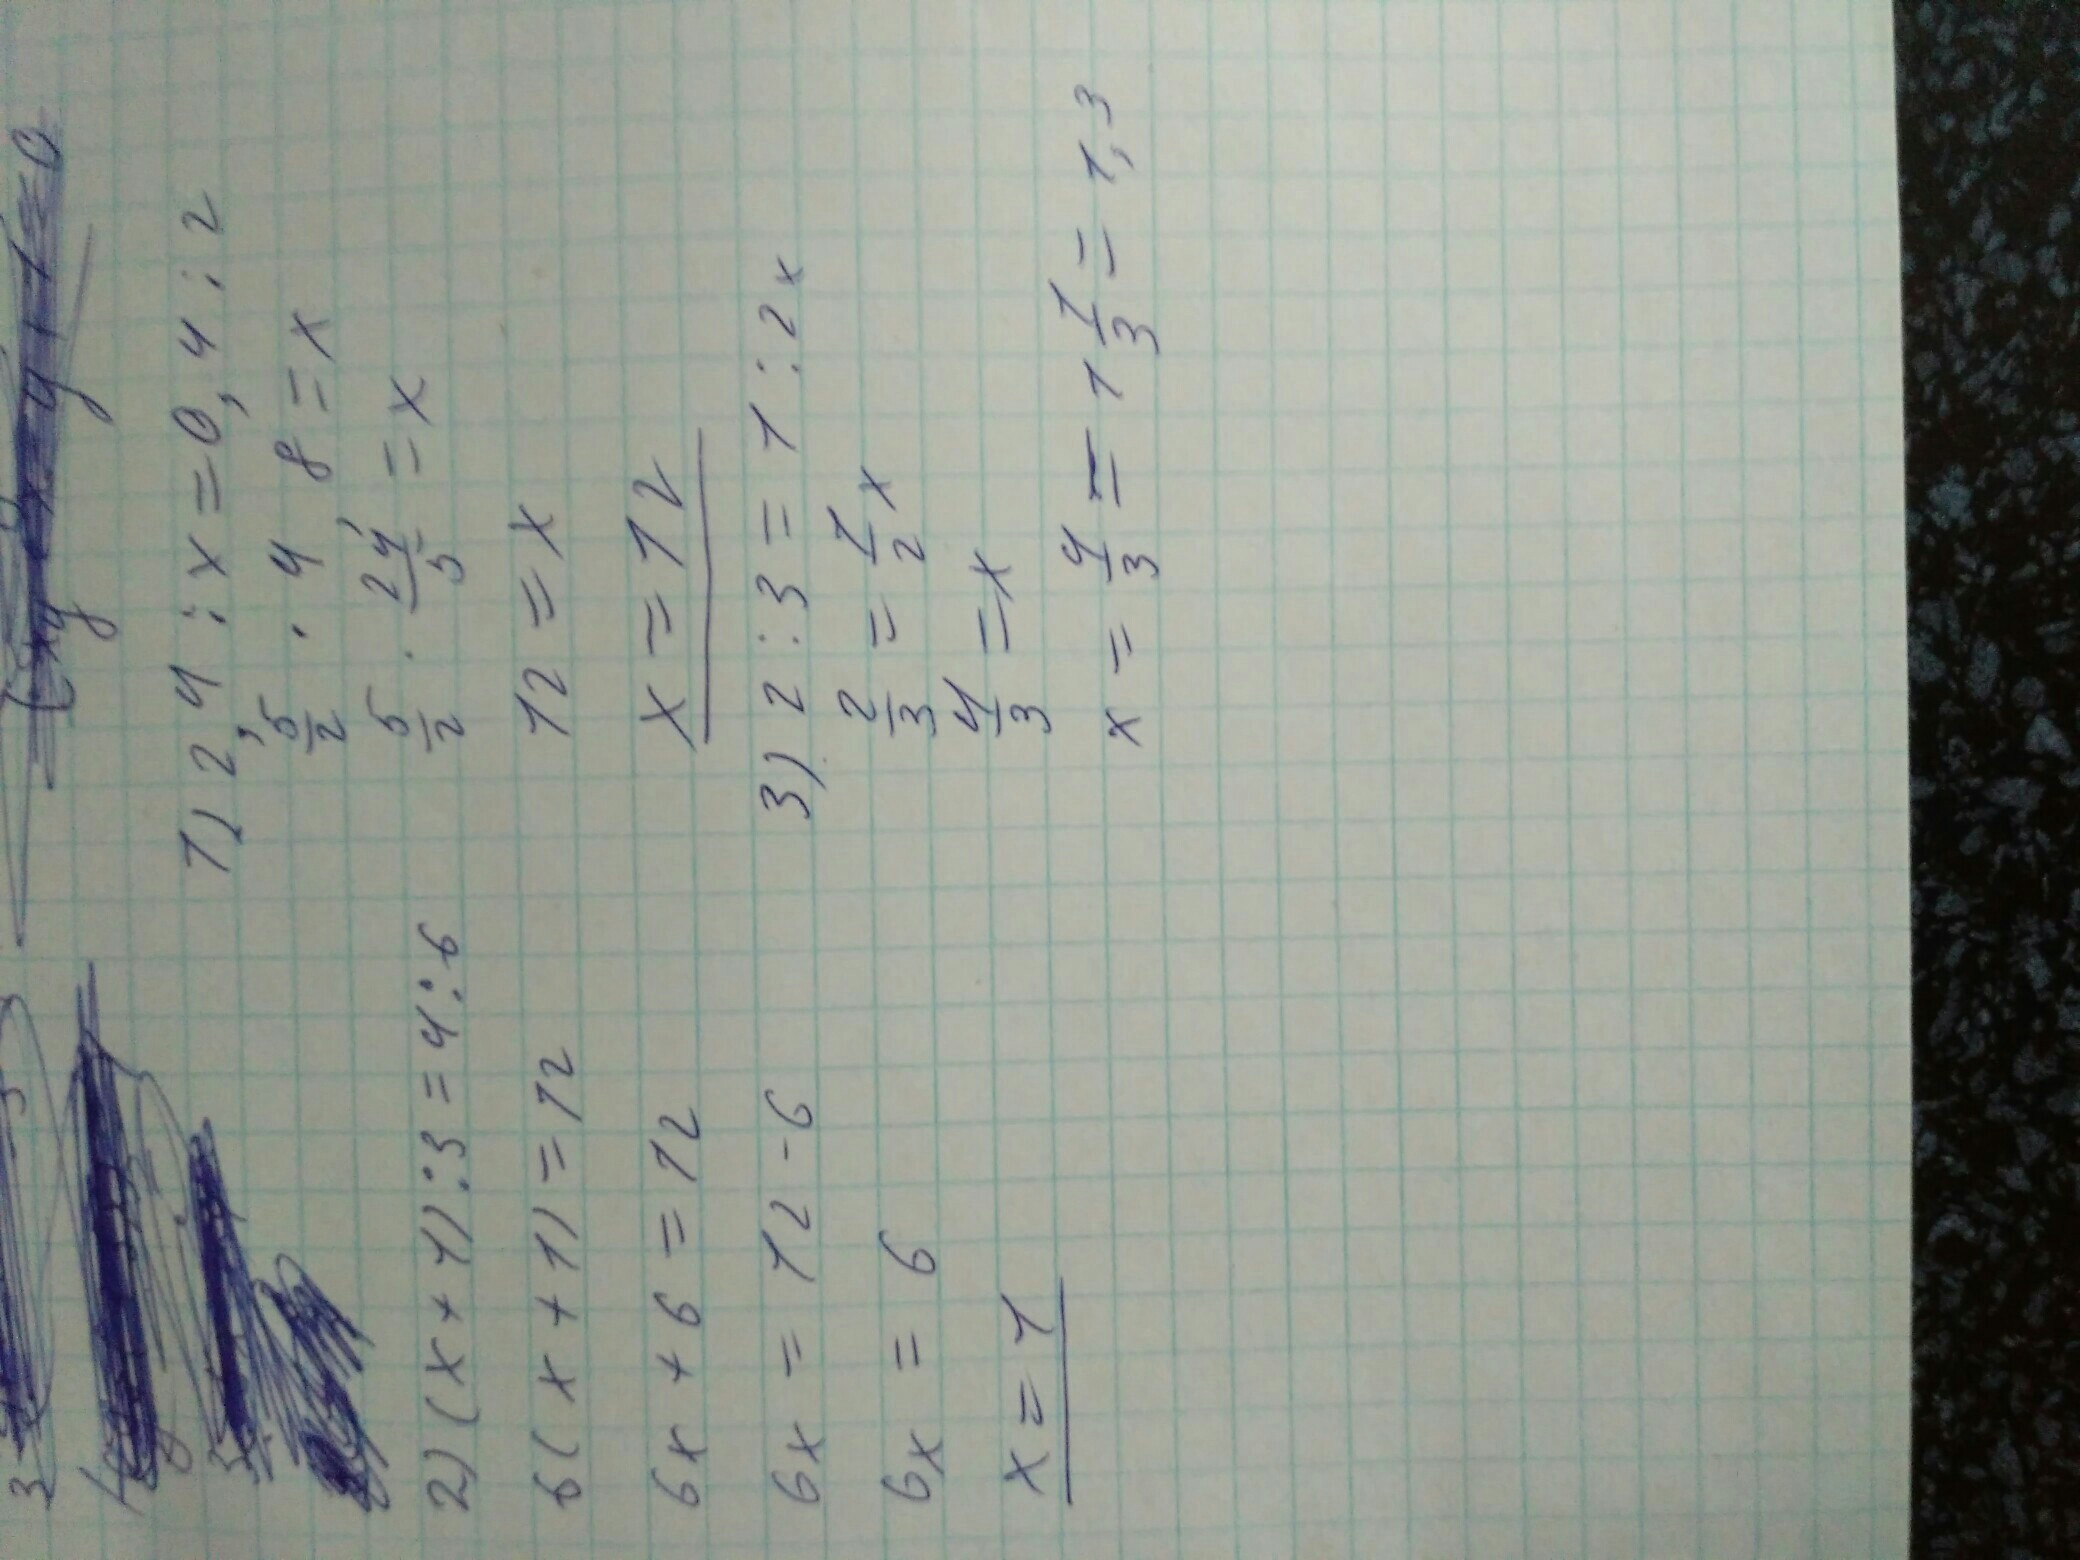 2) (x + 1) : 3 = 4 : 6
6(x + 1) = 12
6x + 6 = 12
6x = 12 - 6
6x = 6
x = 1
1) 2,4 : x = 0,4 : 2
5/2 · 4 8 = x
5/2 · 24/5 = x
12 = x
x = 12
3) 2 : 3 = 1 : 2x
2/3 = 1/2 x
4/3 = x
x = 4/3 = 1 1/3 = 1,3